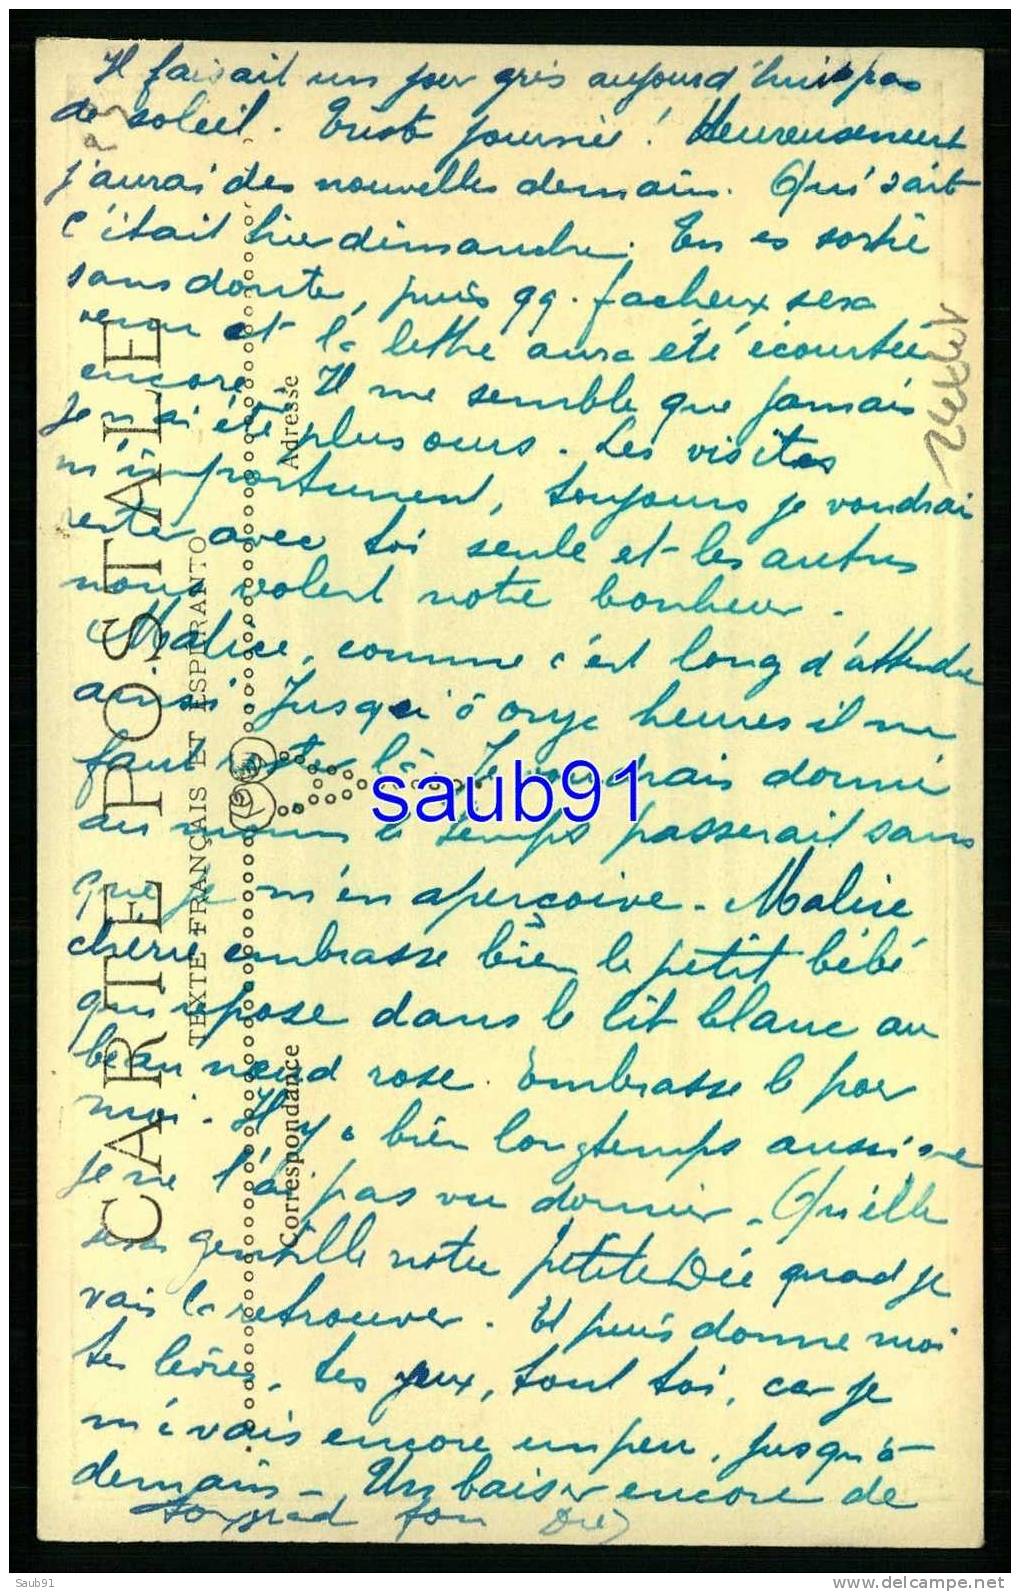 Il faisait un jour gris aujourd'hui pas
de soleil. Triste journée! Heureusement
j'aurai des nouvelles demain. Qui sait
c'était hier dimanche. Tu es sortie
sans doute, puis qq. facheux sera
venu et la lettre aura été écourtée
encore. Il me semble que jamais
je n'ai été plus ours. Les visites
m'importunent, toujours je voudrais
rester avec toi seule et les autres
nous volent notre bonheur.
Malice, comme c'est long d'attendre
ainsi Jusqu'à onze heures il me
faut rester là. Je voudrais dormir
au moins le temps passerait sans
que je m'en aperçoive - Malice
chérie embrasse bien le petit bébé
qui repose dans le lit blanc au
beau noeud rose. Embrasse le pour
moi. Il y a bien longtemps aussi que
je ne l'ai pas vu dormir. Qu'elle
sera gentille notre petite Dée quand je
vais la retrouver. Et puis donne moi
tes lèvres, tes yeux, tout toi, car je
m'en vais encore un peu, jusqu'à
demain - Un baiser encore de
ton grand fou Dré
CARTE POSTALE
TEXTE FRANÇAIS ET ESPERANTO
Correspondance
Adresse
saub91
Saub91
www.delcampe.net